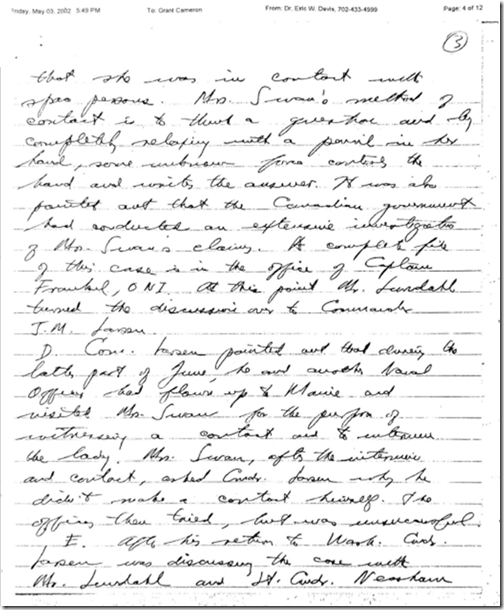 Friday, May 03, 2002 5:49 PM To: Grant Cameron From: Dr. Eric W. Davis, 702-433-4999 Page: 4 of 12
3
that she was in contact with
space persons. Mrs. Swan's method of
contact is to think a question and by
completely relaxing with a pencil in her
hand, some unknown force controls the
hand and writes the answer. It was also
pointed out that the Canadian government
had conducted an extensive investigation
of Mrs. Swan's claims. A complete file
of this case is in the office of Captain
Frankel, ONI. At this point Mr. Lundahl
turned the discussion over to Commander
J.M. Larsen.
D. Com. Larsen pointed out that during the
latter part of June, he and another Naval
Officer had flown up to Maine and
visited Mrs. Swan for the purpose of
witnessing a contact and to interview
the lady. Mrs. Swan, after the interview
and contact, asked Cmdr. Larsen why he
didn't make a contact himself. The
officer then tried, but was unsuccessful.
E. After his return to Wash. Cmdr.
Larsen was discussing the case with
Mr. Lundahl and Lt. Cmdr. Neasham